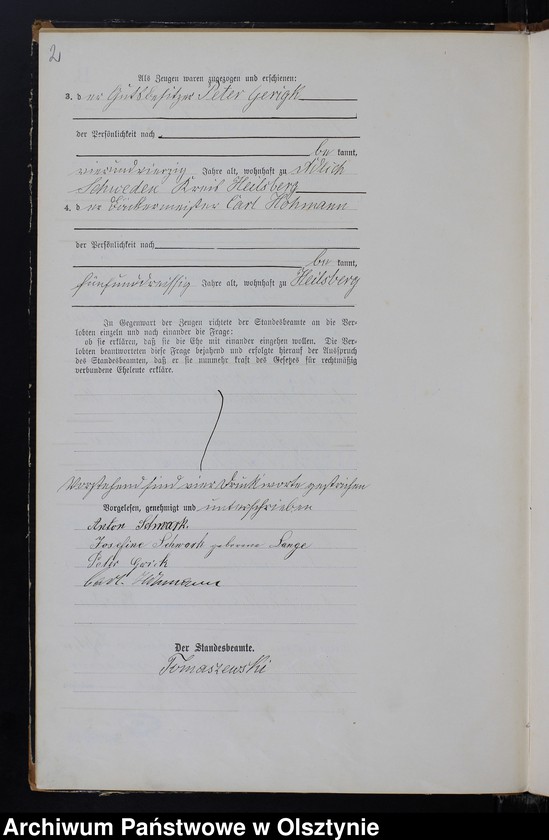 2
Als Zeugen waren zugezogen und erschienen:
3. d er Gutsbesitzer Peter Gerigk
der Persönlichkeit nach
be kannt,
vierundvierzig Jahre alt, wohnhaft zu Adlich
Schweden Kreis Heilsberg
4. d er Bäckermeister Carl Hohmann
der Persönlichkeit nach
be kannt,
fünfunddreissig Jahre alt, wohnhaft zu Heilsberg
In Gegenwart der Zeugen richtete der Standesbeamte an die Ver-
lobten einzeln und nach einander die Frage:
ob sie erklären, daß sie die Ehe mit einander eingehen wollen. Die Ver-
lobten beantworteten diese Frage bejahend und erfolgte hierauf der Ausspruch
des Standesbeamten, daß er sie nunmehr kraft des Gesetzes für rechtmäßig
verbundene Eheleute erkläre.
Vorstehend sind vier Druckworte gestrichen
Vorgelesen, genehmigt und unterschrieben
Anton Schwark
Josefine Schwark geborene Lange
Peter Gerick
Carl Hohmann
Der Standesbeamte.
Tomaszewski
Archiwum Państwowe w Olsztynie